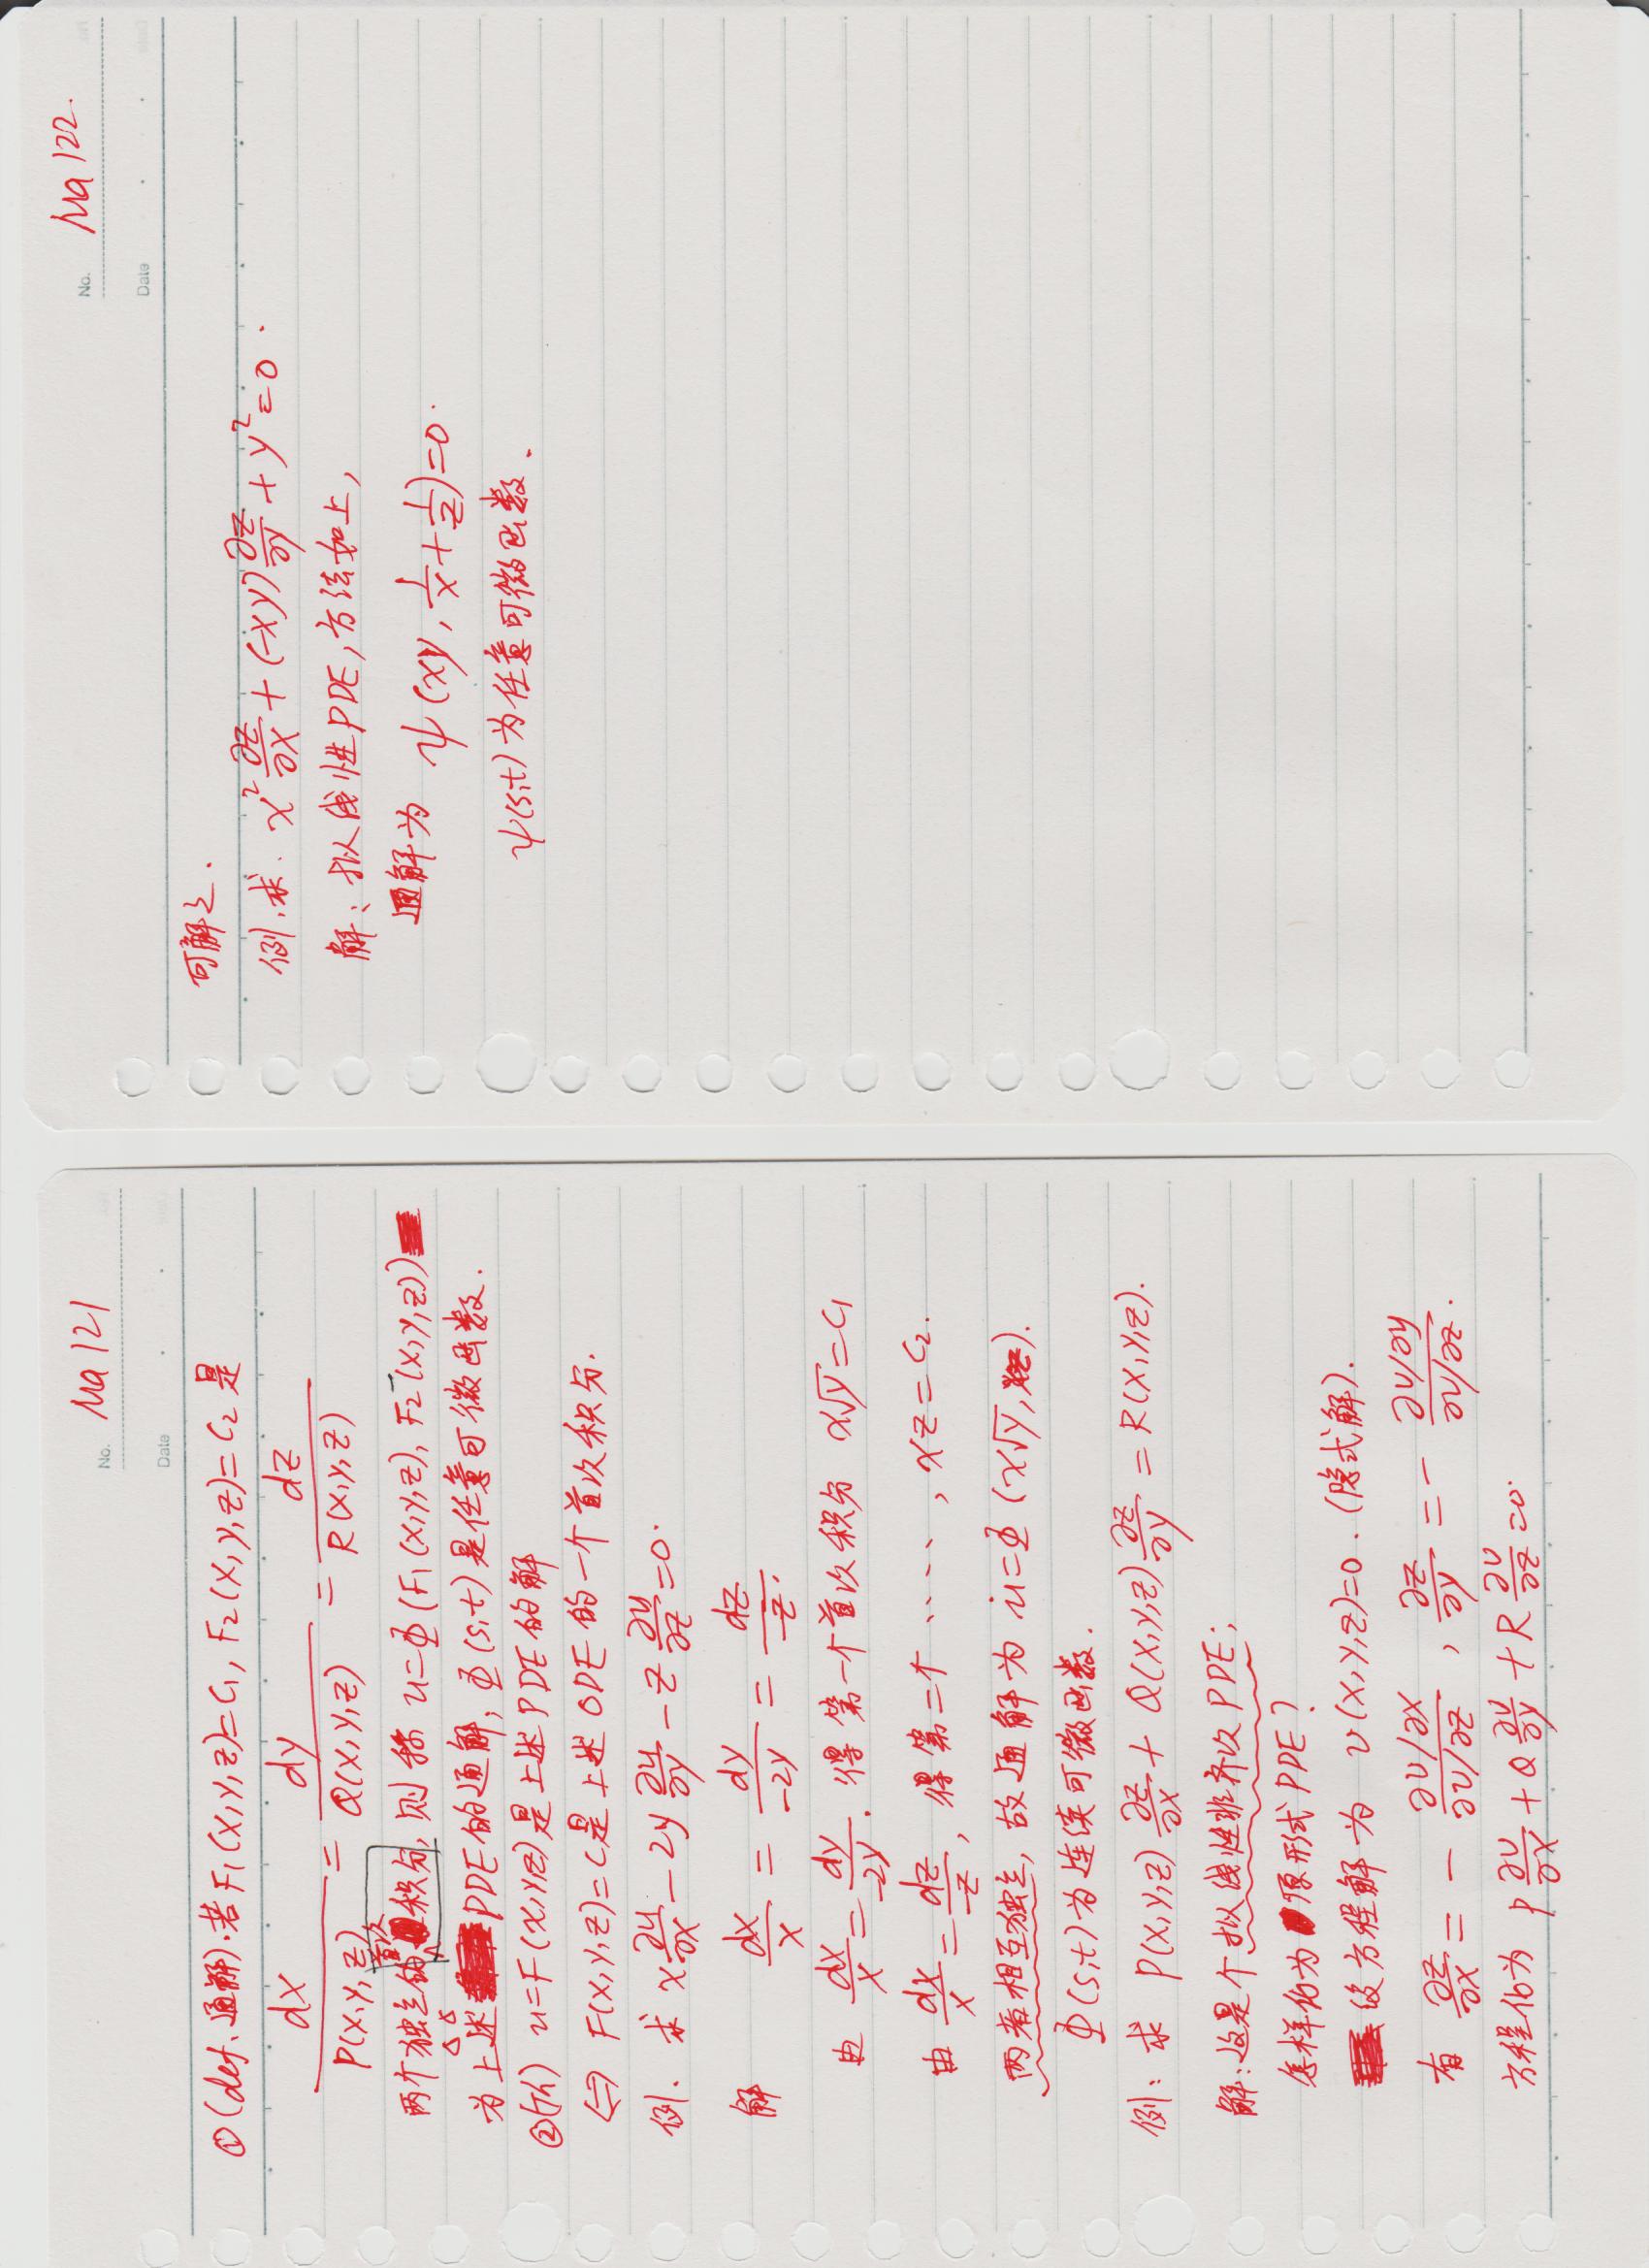 No. Ma 121
Date
①(def、通解).若 F₁(x,y,z)=C₁, F₂(x,y,z)=C₂ 是
dx/P(x,y,z) = dy/Q(x,y,z) = dz/R(x,y,z)
两个独立的首次积分,则称 u=Φ(F₁(x,y,z), F₂(x,y,z))
为上述PDE的通解,Φ(s,t)是任意可微函数.
②(Th) u=F(x,y,z)是上述PDE的解
⇔ F(x,y,z)=C是上述ODE的一个首次积分.
例. 求 x∂u/∂x - 2y ∂u/∂y - z ∂u/∂z =0.
解 dx/x = dy/-2y = dz/-z.
由 dx/x = dy/-2y. 得第一个首次积分 x√y=C₁
由 dx/x = dz/-z, 得第二个 ····, xz=C₂.
两者相互独立,故通解为 u=Φ(x√y, xz).
Φ(s,t)为连续可微函数.
例:求 P(x,y,z) ∂z/∂x + Q(x,y,z) ∂z/∂y = R(x,y,z).
解:这是个拟线性非齐次PDE;
怎样化为原形式PDE?
设方程解为 v(x,y,z)=0.(隐式解).
有 ∂z/∂x = - ∂v/∂x / ∂v/∂z , ∂z/∂y = - ∂v/∂y / ∂v/∂z.
方程化为 P ∂v/∂x + Q ∂v/∂y + R ∂v/∂z =0.
No. Ma 122.
Date
可解之.
例.求. x² ∂z/∂x + (-xy) ∂z/∂y + y²=0.
解:拟线性PDE,方法如上,
通解为 ψ(xy, 1/x + 1/z)=0.
ψ(s,t)为任意可微函数.